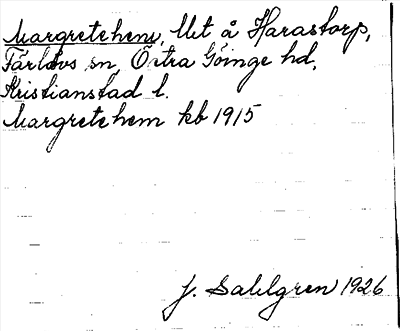 Margretehem, lht å Harastorp,
Färlövs sn, Östra Göinge hd,
Kristianstad l.
Margretehem kb 1915
J. Sahlgren 1926